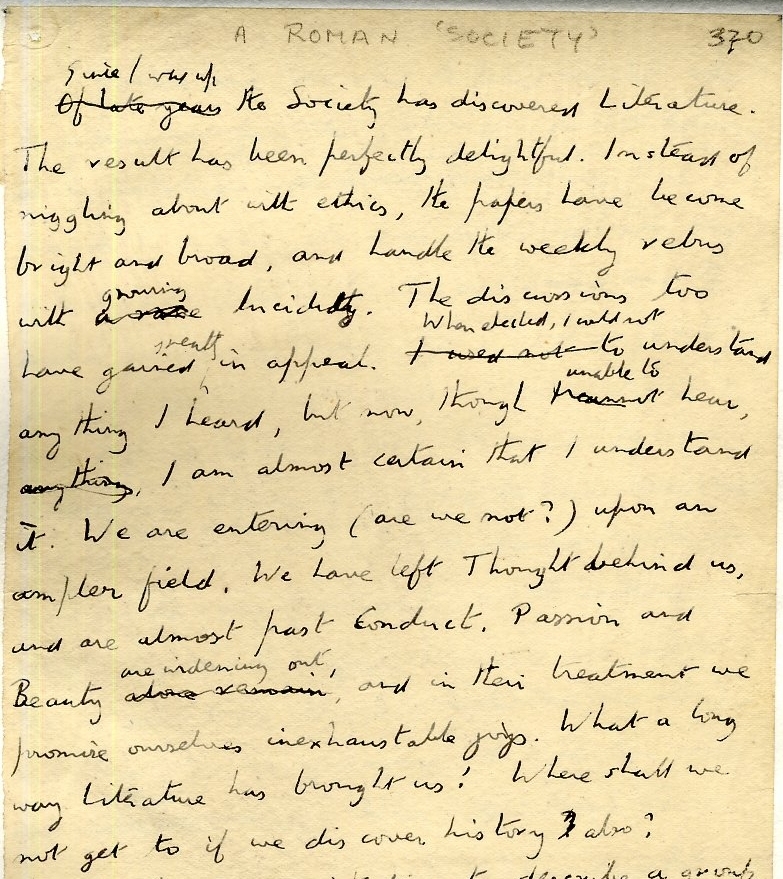 A ROMAN 'SOCIETY' 370
Since I was up
Of late years the Society has discovered Literature.
The result has been perfectly delightful. Instead of
niggling about with ethics, the papers have become
bright and broad, and handle the weekly rebus
growing
with lucidity. The discussions too
When elected, I could not
greatly
have gained in appeal. I used not to understand
unable to
anything I heard, but now, though I cannot hear,
anything, I am almost certain that I understand
it. We are entering (are we not?) upon an
ampler field. We have left Thought behind us,
and are almost past Conduct. Passion and
are widening out,
Beauty alone remain, and in their treatment we
promise ourselves inexhaustable joys. What a long
way Literature has brought us! Where shall we
not get to if we discover history also?
to describe a group